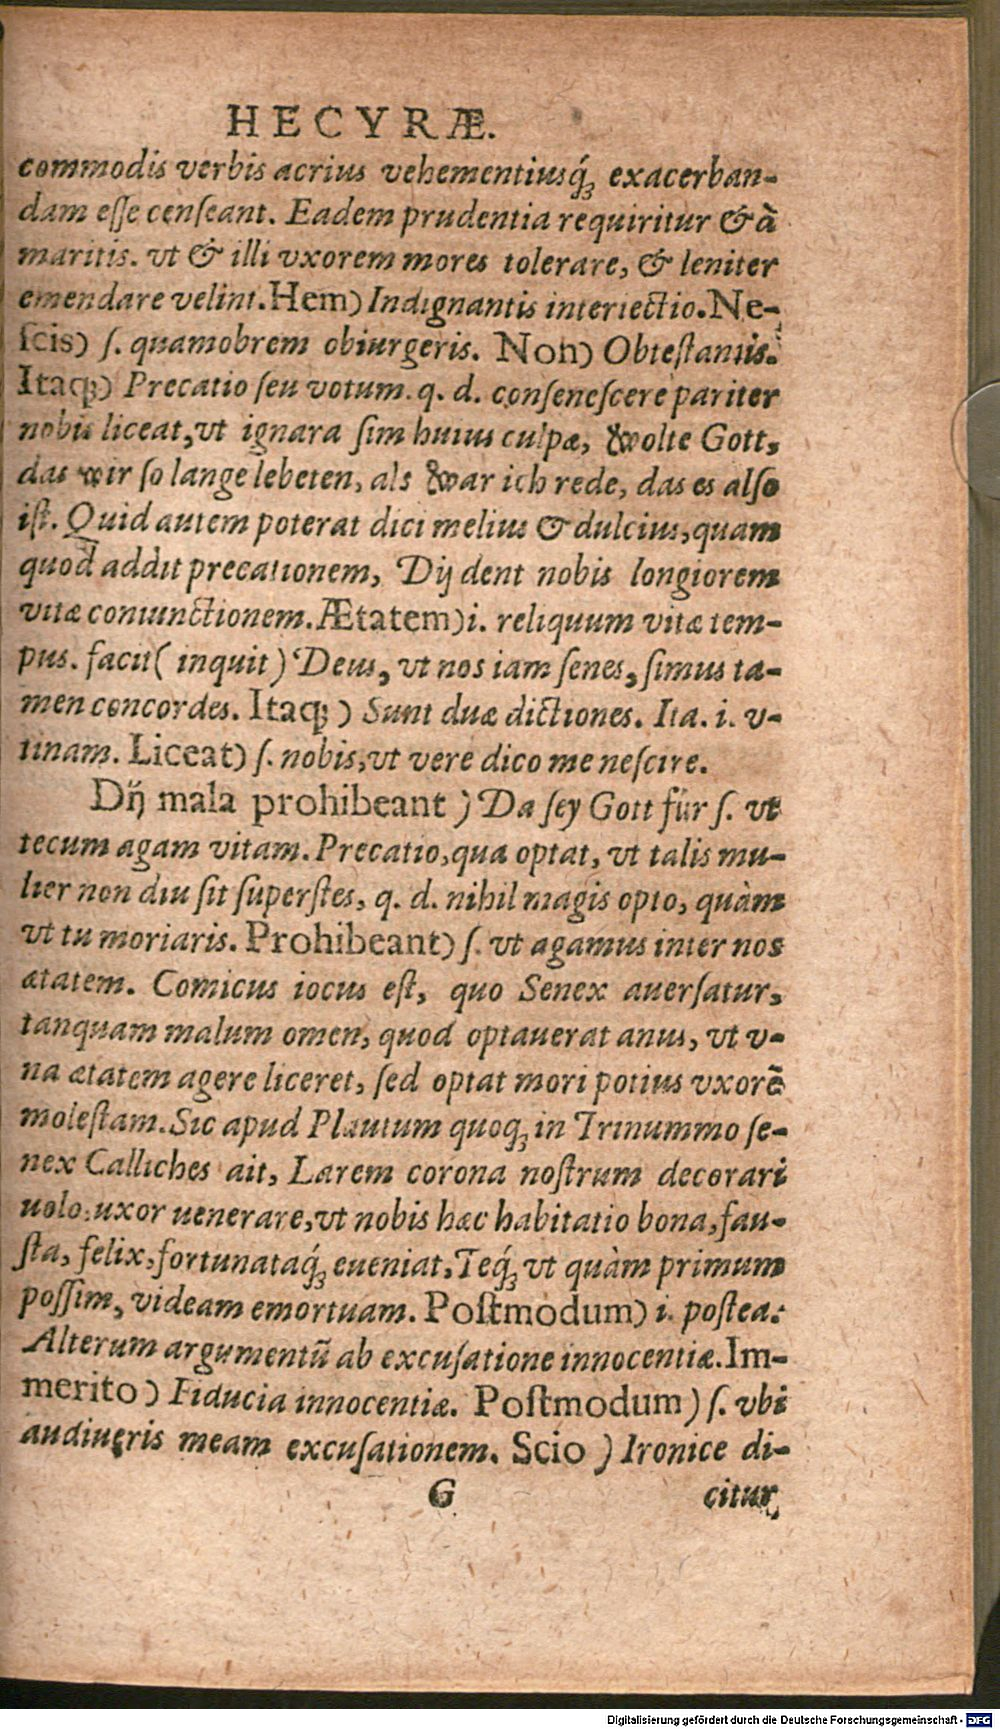 HECYRÆ.
commodis verbis acrius vehementiusq́; exacerban-
dam eſſe cenſeant. Eadem prudentia requiritur & à
maritis. vt & illi vxorem mores tolerare, & leniter
emendare velint. Hem) Indignantis interiectio. Ne-
ſcis) ſ. quamobrem obiurgeris. Non) Obteſtantis.
Itaq;) Precatio ſeu votum. q. d. conſeneſcere pariter
nobis liceat, vt ignara ſim huius culpæ, wolte Gott,
das wir ſo lange lebeten, als war ich rede, das es alſo
iſt. Quid autem poterat dici melius & dulcius, quam
quod addit precationem, Dij dent nobis longiorem
vitæ coniunctionem. Ætatem) i. reliquum vitæ tem-
pus. facit (inquit) Deus, vt nos iam ſenes, ſimus ta-
men concordes. Itaq;) Sunt duæ dictiones. Ita. i. v-
tinam. Liceat) ſ. nobis, vt vere dico me neſcire.
Dij mala prohibeant) Da ſey Gott für ſ. vt
tecum agam vitam. Precatio, qua optat, vt talis mu-
lier non diu ſit ſuperſtes, q. d. nihil magis opto, quàm
vt tu moriaris. Prohibeant) ſ. vt agamus inter nos
ætatem. Comicus iocus eſt, quo Senex auerſatur,
tanquam malum omen, quod optauerat anus, vt v-
na ætatem agere liceret, ſed optat mori potius vxorē
moleſtam. Sic apud Plautum quoq; in Trinummo ſe-
nex Calliches ait, Larem corona noſtrum decorari
uolo: uxor uenerare, vt nobis hæc habitatio bona, fau-
ſta, felix, fortunataq́; eueniat, Teq́; vt quàm primum
poſſim, videam emortuam. Poſtmodum) i. poſtea:
Alterum argumentũ ab excuſatione innocentiæ. Im-
merito) Fiducia innocentiæ. Poſtmodum) ſ. vbi
audiueris meam excuſationem. Scio) Ironice di-
G citur
Digitalisierung gefördert durch die Deutsche Forschungsgemeinschaft - DFG